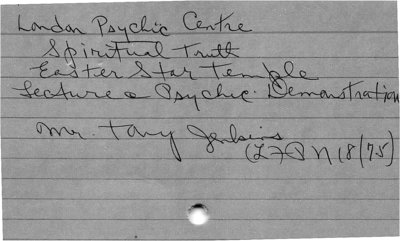 London Psychic Centre
Spiritual Truth
Easter Star Temple
Lecture & Psychic Demonstration
Mr. Tony Jenkins
(LFPN 18/75)